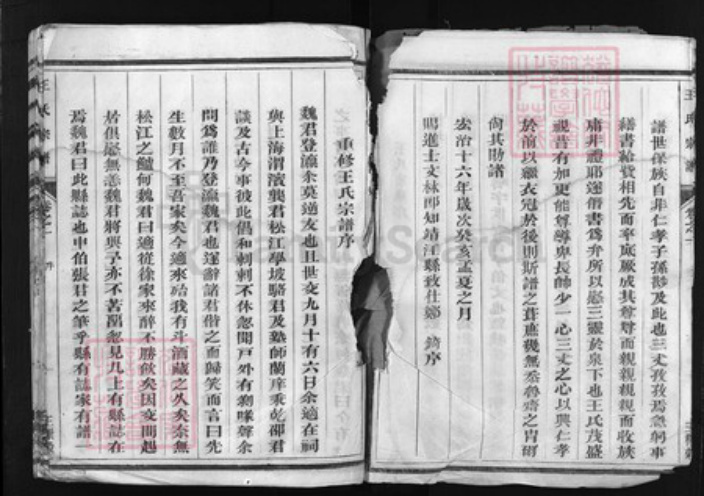 譜世保族自非仁孝子孫尠及此也三丈孜孜焉急躬事
繕書給費相先而率底厥成其尊尊而親親親親而收族
庸非禮耶遂僭書爲弁所以慰三靈於泉下也王氏茂盛
視昔有加更能尊尊卑長師少一心三丈之心以興仁孝
於前以繼衣冠於後則斯譜之葺應穖無忝魯齋之冑爾
尙其勛諸
宏治十六年歲次癸亥孟夏之月
賜進士文林郎知靖江縣致仕鄭 錡序
王氏宗譜
重修王氏宗譜序
魏君登瀛余莫逆友也且世交九月十有六日余適在祠
與上海渭濱龔君松江學坡駱君及塾師蘭庠秉乾邵君
談及古今事彼此倡和刺刺不休忽聞戶外有剝啄聲余
問爲誰乃登瀛魏君也遂辭諸君偕之而歸笑而言曰先
生數月不至吾家矣今適來殆我有斗酒藏之久矣奈無
松江之鱸何魏君曰適從徐家來醉不勝飲矣因交問起
居俱慰無恙魏君將與予亦不苦留忽見几上有縣誌在
焉魏君曰此縣誌也申伯張君之筆乎縣有誌家有譜一
王氏宗譜